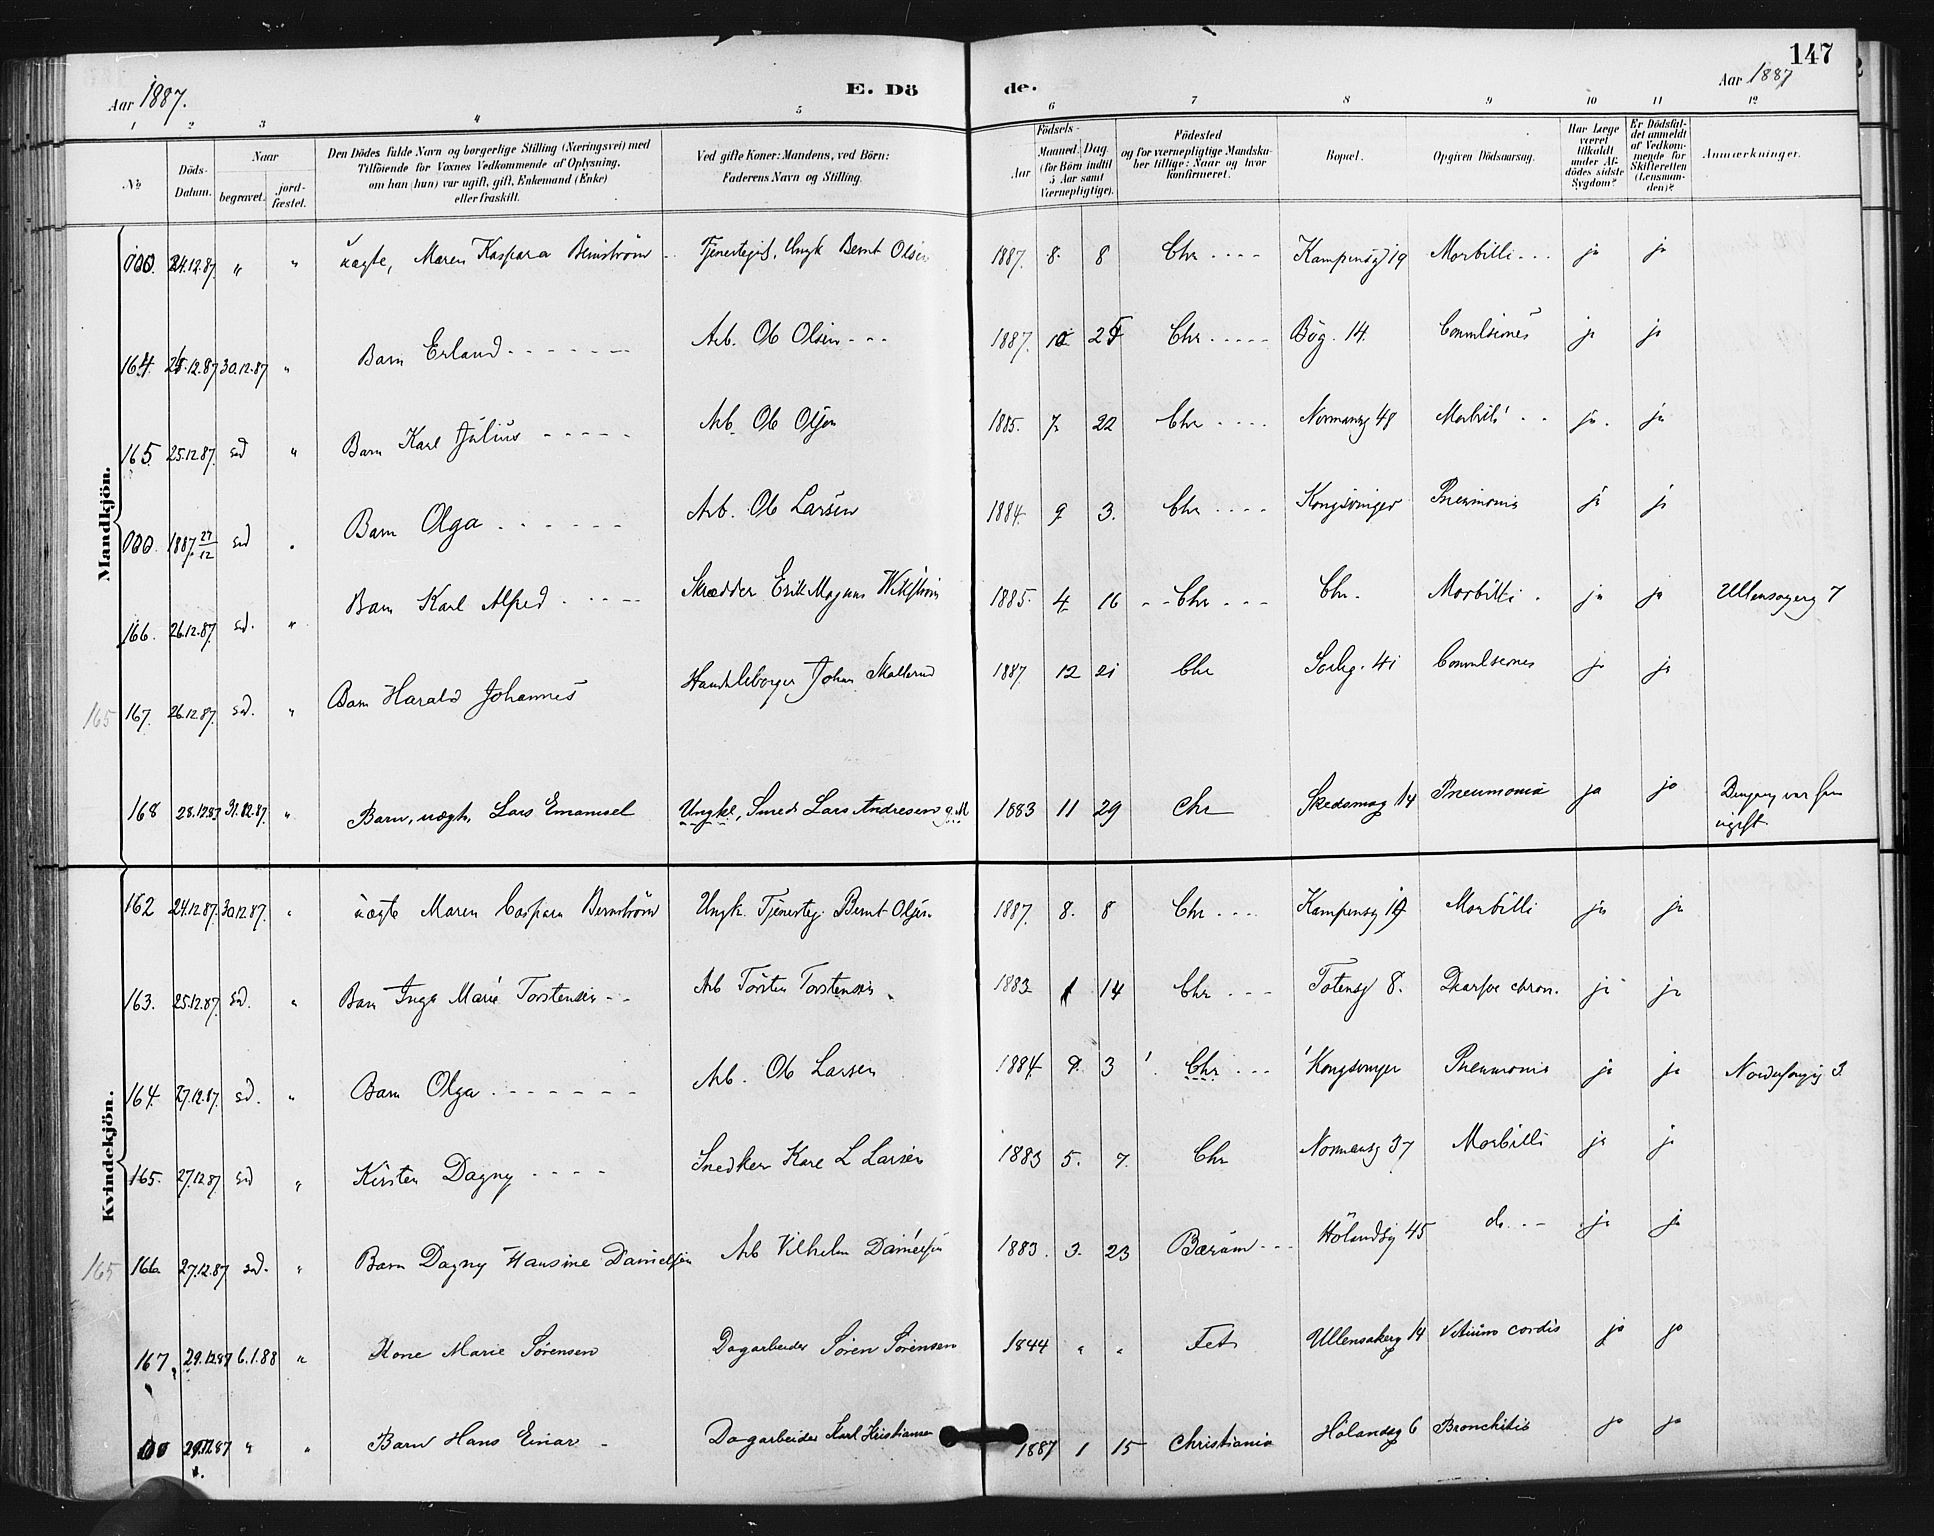 147
Aar 1887. E. Dö de. Aar 1887
1 2 3 4 5 6 7 8 9 10 11 12
№ Döds-Datum. Naar begravet. jordfæstet. Den Dödes fulde Navn og borgerlige Stilling (Næringsvei) med Tilföiende for Voxnes Vedkommende af Oplysning, om han (hun) var ugift, gift, Enkemand (Enke) eller fraskilt. Ved gifte Koner: Mandens, ved Börn: Faderens Navn og Stilling. Födsels- Aar Maaned. Dag (for Börn indtil 5 Aar samt Værnepligtige). Födested og for værnepligtige Mandskaber tillige: Naar og hvor konfirmeret. Bopæl. Opgiven Dödsaarsag. Har Læge været tilkaldt under Afdödes sidste Sygdom? Er Dödsfaldet anmeldt af Vedkommende for Skifteretten (Lensmanden)? Anmærkninger.
Mandkjön.
000. 24.12.87. " " uægte, Maren Kaspara Bernström Ungk Bernt Olsen 1887. 8. 8 Chr. Kampensg 19 Morbilli ja ja
164. 12.87 30.12.87 " Barn Erland Arb. Ob Olsen 1887. 10 Chr Bög. 14. Convulsiones ja ja
165. 25.12.87. sd " Barn Karl Julius Arb. Ob Olsen 1885. 7. 22 Chr Normansg 48 Morbilli ja ja
000. 1887. 27/12 sd " Barn Olga Arb. Ob Larsen 1884. 9 3. Chr Kongsvinger Pneumonia ja ja
166. 26.12.87. sd. " Barn Karl Alfred Skrædder Erik Magnus Wikström 1885. 4. 16 Chr Chr. Morbilli ja ja Ullensagerg 7
165 167. 26.12.87. sd. " Barn Harald Johannes Handelsborger Johan Skallerud 1887 12 21 Chr Sorlig. 41 Convulsiones ja ja
168 28.12.87 31.12.87. " Barn, uægte, Lars Emanuel Ungkl, Smed Lars Andresen g. M 1883 11 29 Chr Skedsmog 14 Pneumonia ja ja var ugift
Kvindekjön.
162 24.12.87. 30.12.87. " uægte Maren Caspara Bernström Ungk. Tjenesteg. Bernt Olsen 1887. 8. 8 Chr Kampensg 19 Morbilli ja ja
163. 25.12.87. sd. " Barn Inga Marie Torstensen Arb Torsten Torstensen 1883 1 14 Chr Totensg 8. chron. ja ja
164. 27.12.87. sd. " Barn Olga Arb. Ob Larsen 1884. 9. 3 Chr Kongsvinger Pneumonia ja ja 3.
165. 27.12.87 sd " Kirsten Dagny Snedker Karl L Larsen 1883 5. 7. Chr Normansg 37 Morbilli ja ja
165 166 27.12.87 sd. " Barn Dagny Hansine Danielsen Arb Vilhelm Danielsen 1883. 3. 23 Bærum Hölandsg 45 do ja ja
167. 29.12.87 6.1.88 " Kone Marie Sørensen Dagarbeider Søren Sørensen 1844 " " Fet Ullensakerg 14 Vitium cordis ja ja
00 29.12.87 " " Barn Hans Einar Dagarbeider Karl Kristiansen 1887 1 15 Christiania Hölandsg 6 Bronchitis ja ja